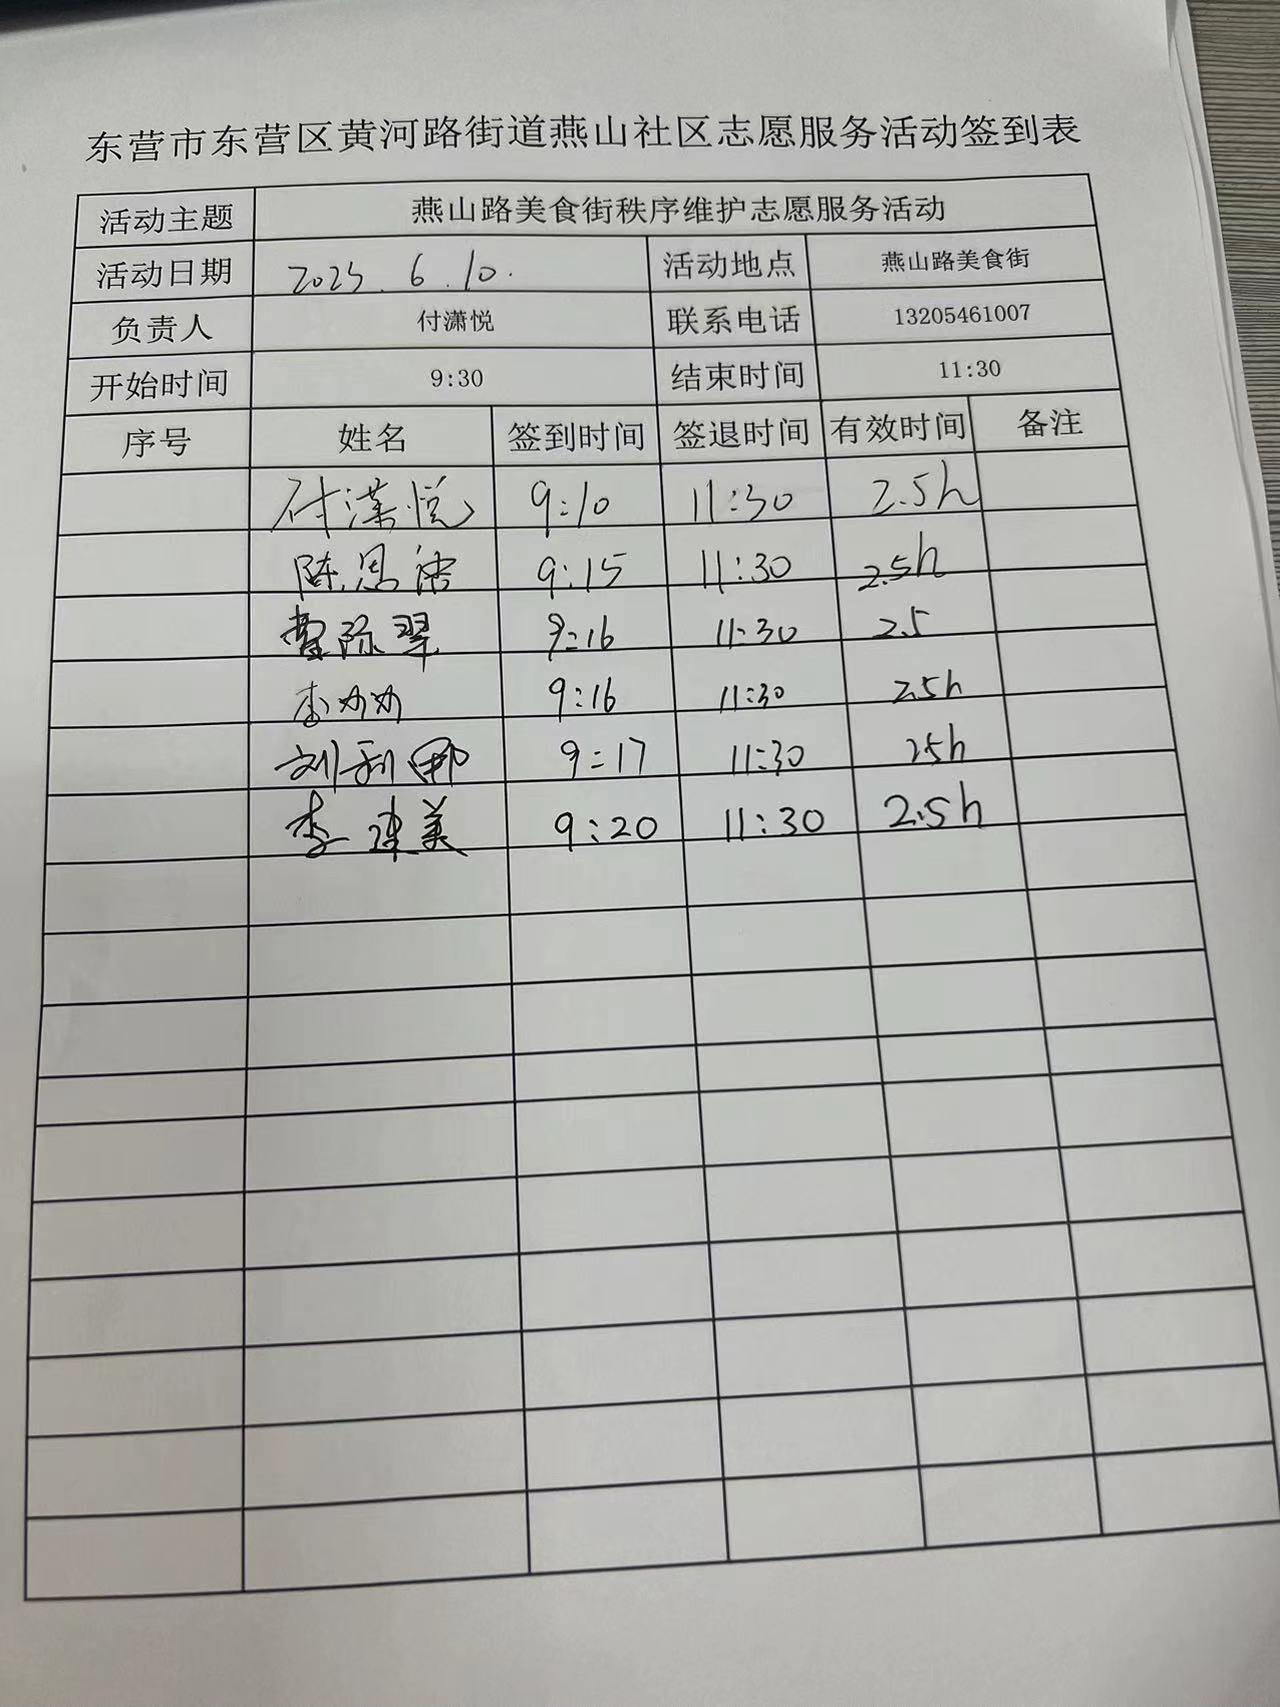 东营市东营区黄河路街道燕山社区志愿服务活动签到表
活动主题 燕山路美食街秩序维护志愿服务活动
活动日期 2025.6.10. 活动地点 燕山路美食街
负责人 付潇悦 联系电话 13205461007
开始时间 9:30 结束时间 11:30
序号 姓名 签到时间 签退时间 有效时间 备注
付潇悦 9:10 11:30 2.5h
陈思 9:15 11:30 2.5h
曹 翠 9:16 11:30 2.5
李 9:16 11:30 2.5h
刘利娜 9:17 11:30 2.5h
李建美 9:20 11:30 2.5h